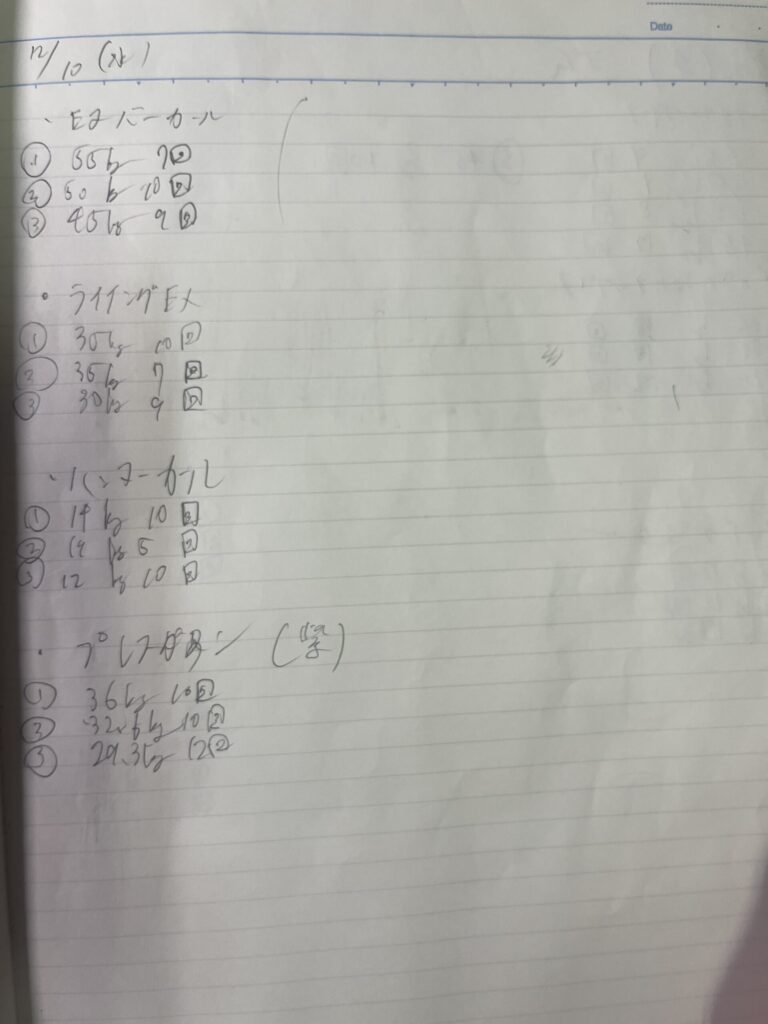 Date
12/10 (水)
・EZバーカール
① 55kg 7回
② 50kg 10回
③ 45kg 9回
・ライイングEX
① 35kg 10回
② 35kg 7回
③ 30kg 9回
・ハンマーカール
① 14kg 10回
② 14kg 5回
③ 12kg 10回
・プレスダウン (紫)
① 36kg 10回
② 32.6kg 10回
③ 29.3kg 12回